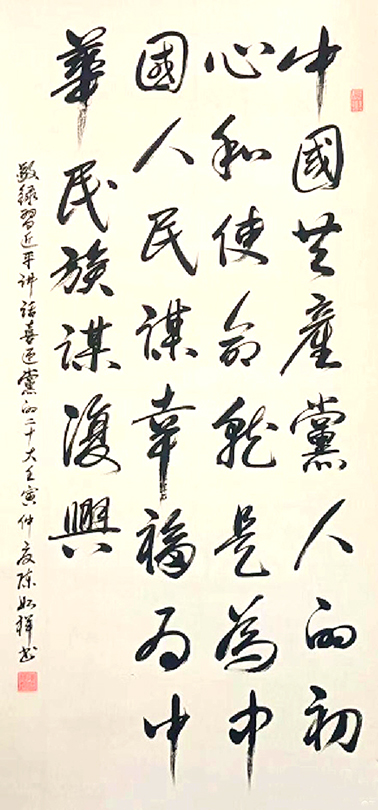 中國共產黨人的初
心和使命就是為中
國人民謀幸福为中
華民族謀復興
敬録習近平讲話喜迎黨的二十大壬寅仲夏陈如祥书